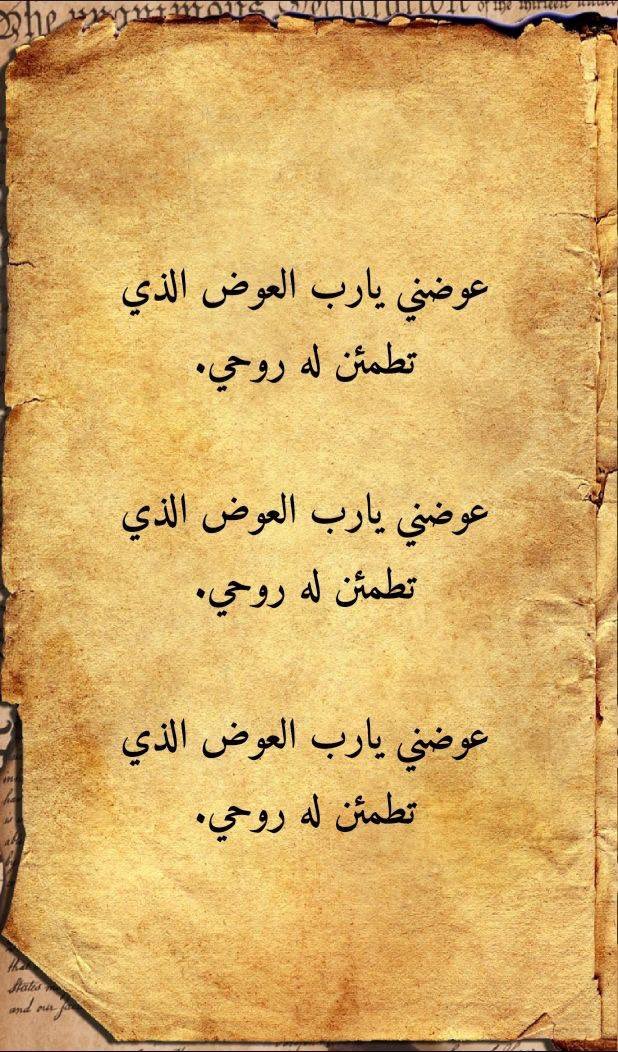 The unanimous Declaration of the thirteen united
عوضني يارب العوض الذي
تطمئن له روحي.
عوضني يارب العوض الذي
تطمئن له روحي.
عوضني يارب العوض الذي
تطمئن له روحي.
that
States
and our